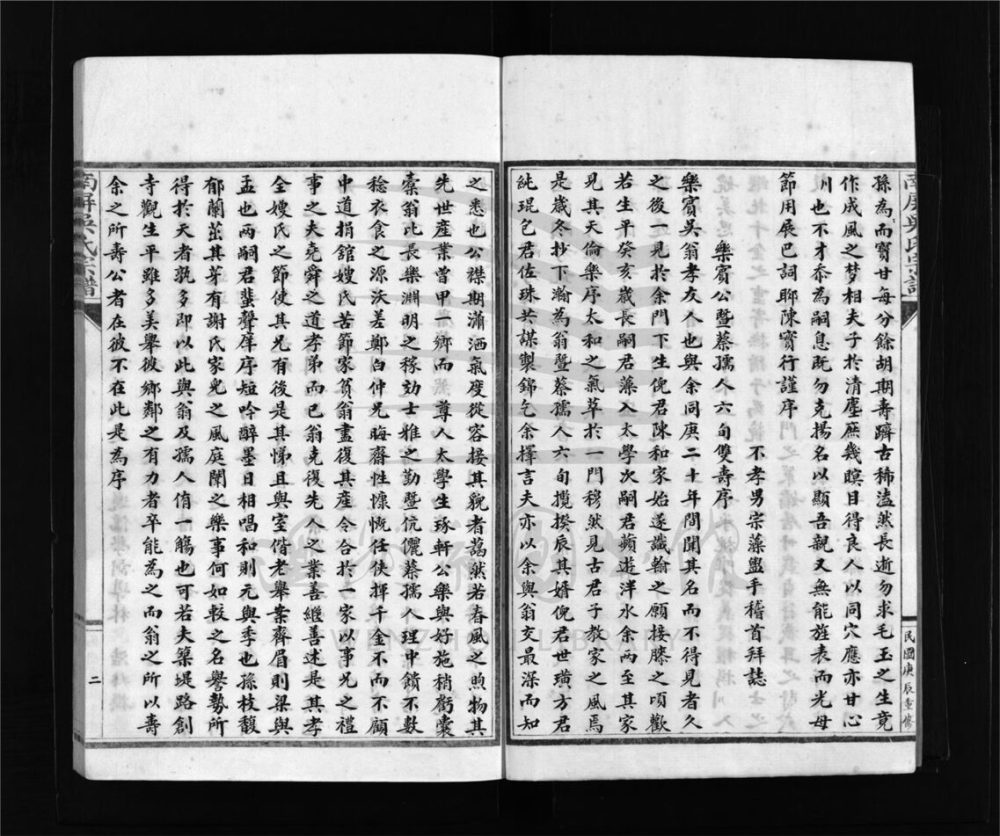 孫為而寶甘每分餘胡期壽躋古稀溘然長逝勿求毛玉之生竟
作成風之梦相夫子於清塵庶幾瞑目得良人以同穴應亦甘心
訓也不才忝為嗣息既勿克揚名以顯吾親又無能旌表而光母
節用展巴詞聊陳實行謹序
不孝男宗藻盥手稽首拜誌
樂賓公暨蔡孺人六旬雙壽序
樂賓吳翁孝友人也與余同庚二十年間聞其名而不得見者久
之後一見於余門下生倪君陳和家始遂識翰之願接膝之頃歡
若生平癸亥歲長嗣君藻入太學次嗣君蘋遊泮水余兩至其家
見其天倫樂序太和之氣萃於一門穆然見古君子教家之風焉
是歲冬抄下瀚為翁暨蔡孺人六旬攬揆辰其婿倪君世璜方君
純琨乞君佐珠共謀製錦乞余擇言夫亦以余與翁交最深而知
之悉也公襟期瀟洒氣度從容接其貌者藹然若春風之煦物其
先世產業曾甲一鄉而尊人太學生琢軒公樂與好施稍虧囊
橐翁比長樂淵明之稼効士雅之勤暨伉儷蔡孺人理中饋不數
稔衣食之源沃差鄭白仲兄晦齋性慷慨任俠揮千金不而不顧
中道捐舘嫂氏苦節家貧翁盡復其產令合於一家以事兄之禮
事之夫堯舜之道孝弟而已翁克復先人之業善繼善述是其孝
全嫂氏之節使其兄有後是其悌且與室偕老舉案齊眉則梁與
孟也兩嗣君蜚聲庠序短吟醉墨日相唱和則元與季也孫枝馥
郁蘭茁其芽有謝氏家兒之風庭闈之樂事何如較之名譽勢所
得於天者孰多即以此與翁及孺人侑一觴也可若夫築堤路創
寺觀生平雖多美舉彼鄉鄰之有力者卒能為之而翁之所以壽
余之所壽公者在彼不在此是為序
南屏吳氏宗譜
二
民國庚辰重修
WENZHOU LIBRARY